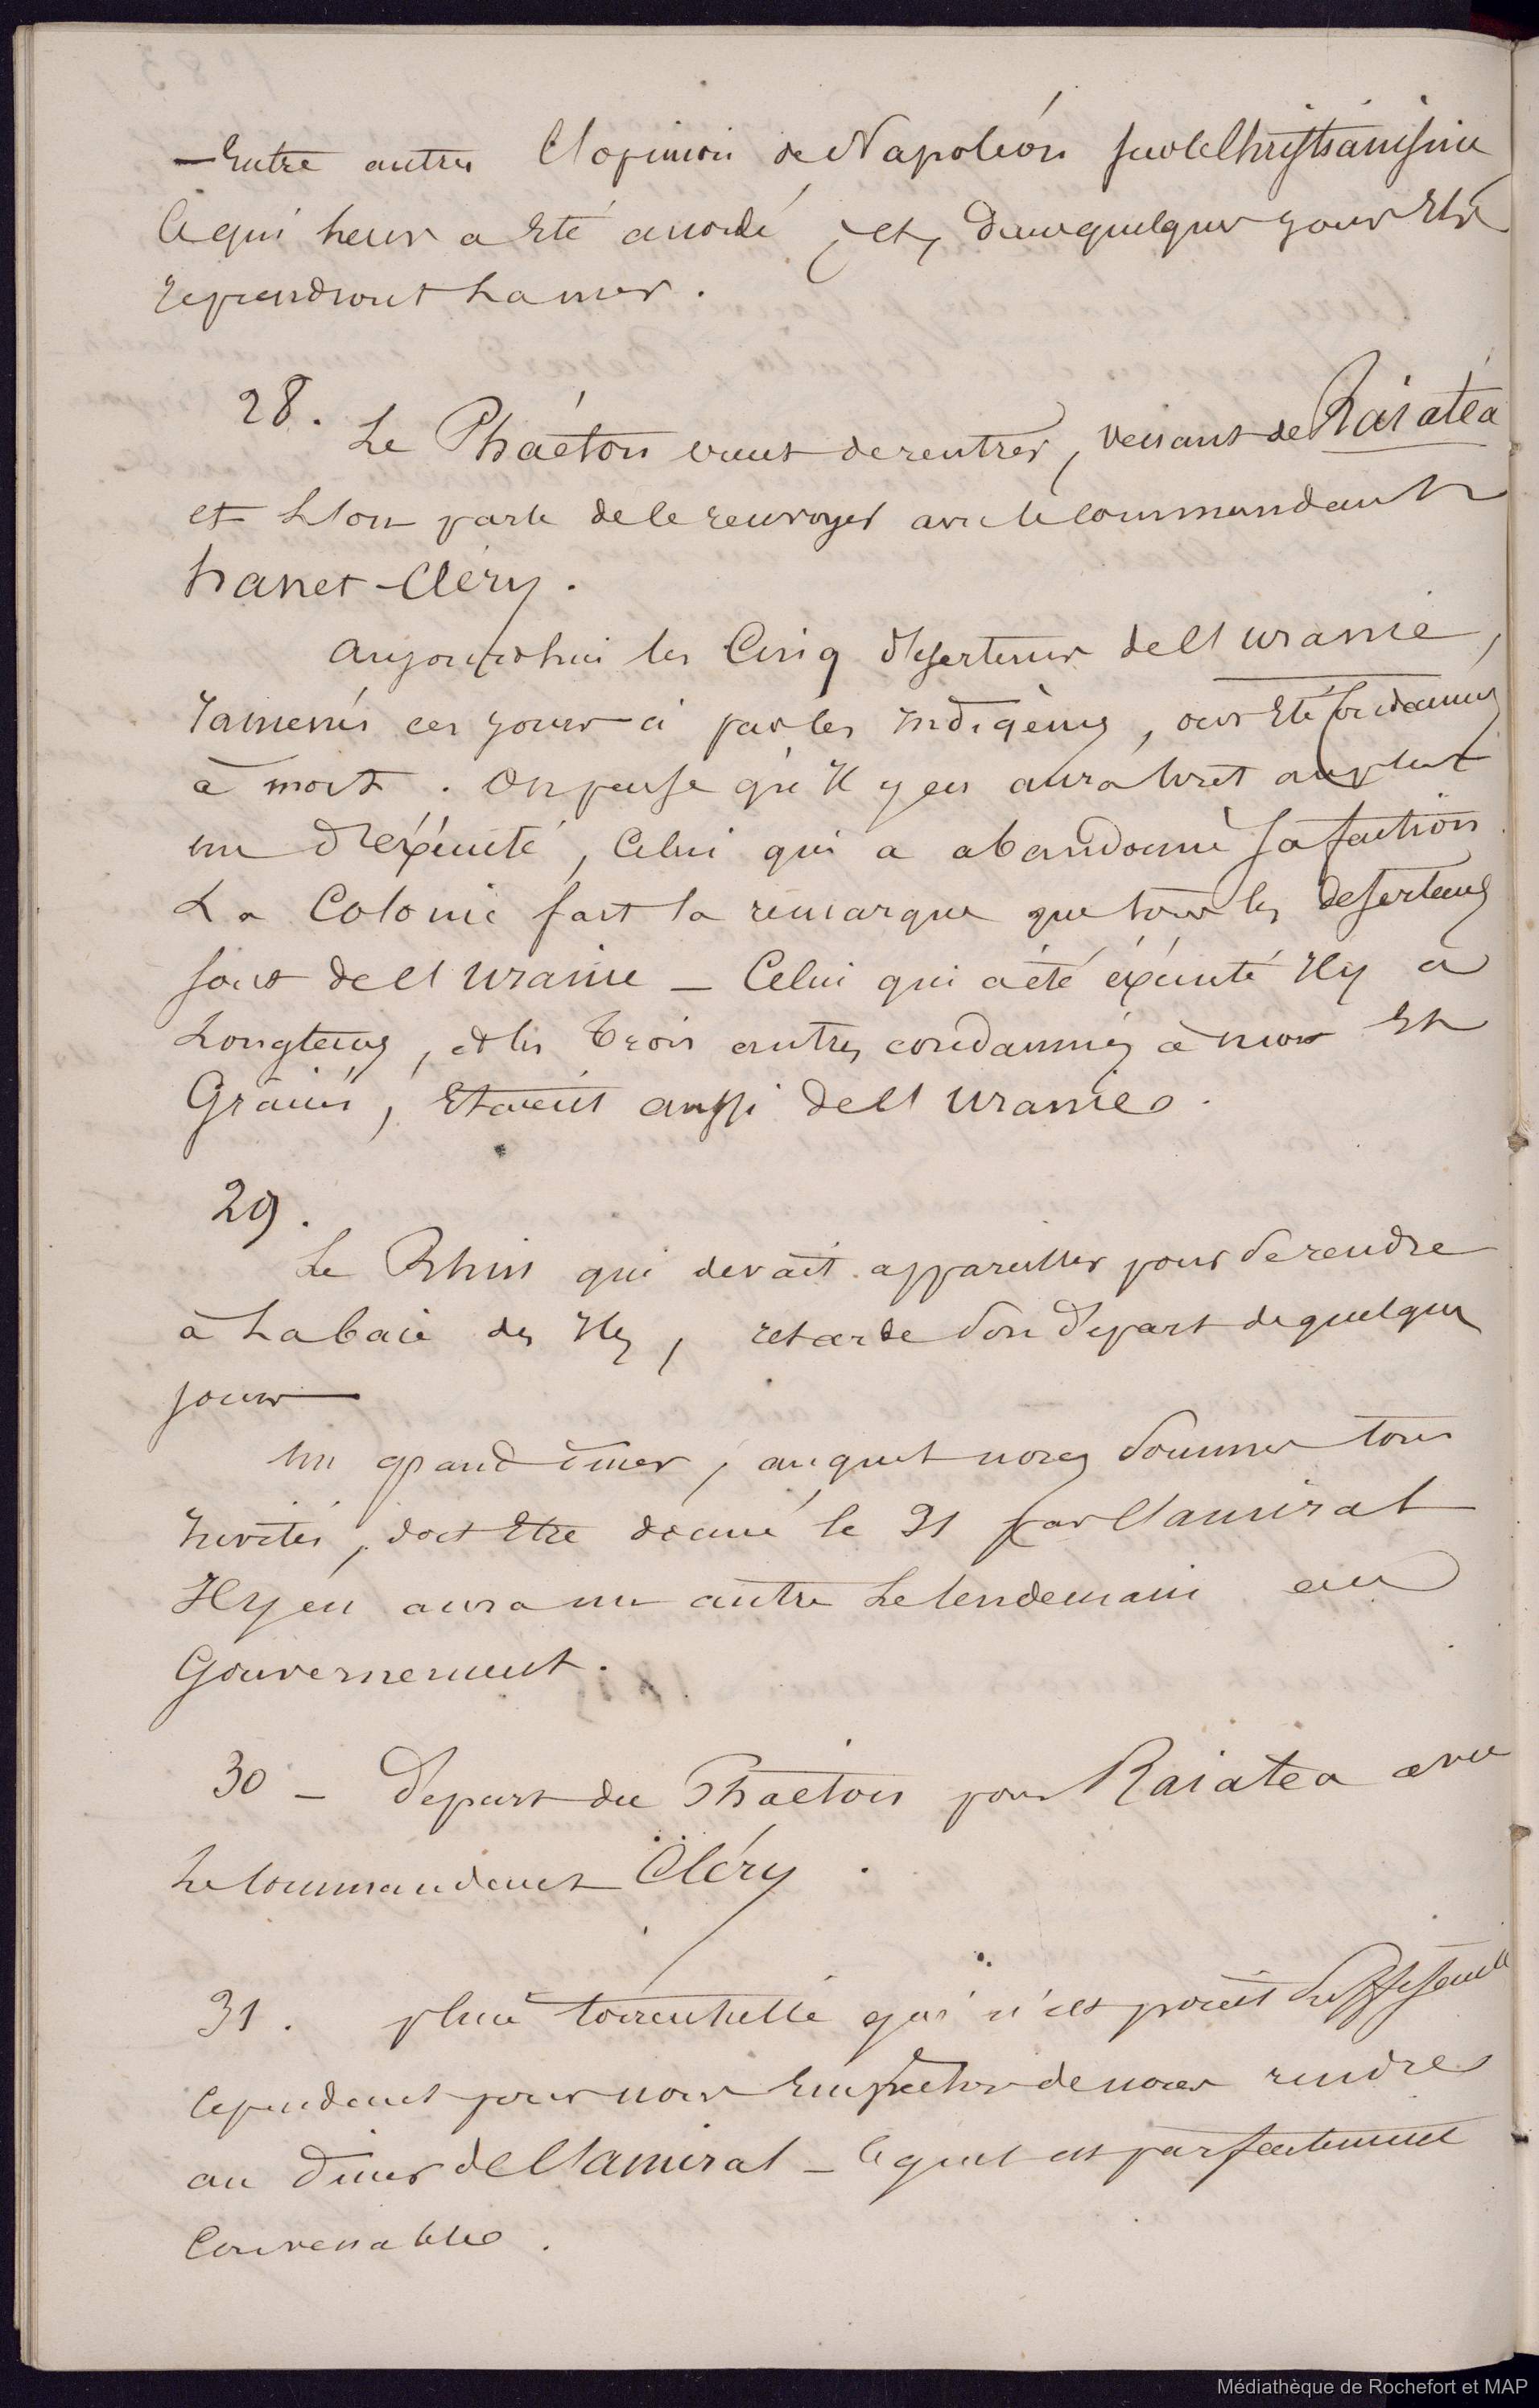 — Entre autres l'opinion de Napoléon sur le Christianisme
Ce qui leur a Eté accordé, et, dans quelques jours Ils
reprendront La mer.
28. Le Phaéton vient de rentrer, venant de Raiatéa
et L'on parle de le renvoyer avec le Commandant
hanet-Cléry.
aujourd'hui les Cinq déserteurs de l'Uranie,
ramenés ces jours ci par les Indigènes, ont Eté Condamnés
à mort. On pense qu'Il y en aura tout au plus
un d'éxécuté, Celui qui a abandonné sa faction
La Colonie fait la remarque que tous les déserteurs
sont de l'Uranie — Celui qui a été éxécuté Il y a
Longtems, et les Trois autres condamnés à mort Et
Graciés, Etaient aussi de l'Uranie.
29.
Le Rhin qui devait appareiller pour se rendre
à La baie des Iles, retarde son départ de quelques
jours —
Un grand diner, auquel nous sommes tous
Invités, doit Etre donné le 31 par l'amiral
Il y en aura un autre Le lendemain au
Gouvernement.
30 — départ du Phaéton pour Raiatea avec
Le Commandant Cléry.
31. pluie torrentielle qui n'est point suffisante
Cependant pour nous Empêcher de nous rendre
au diner de l'amiral — lequel est parfaitement
Convenable.
Médiathèque de Rochefort et MAP